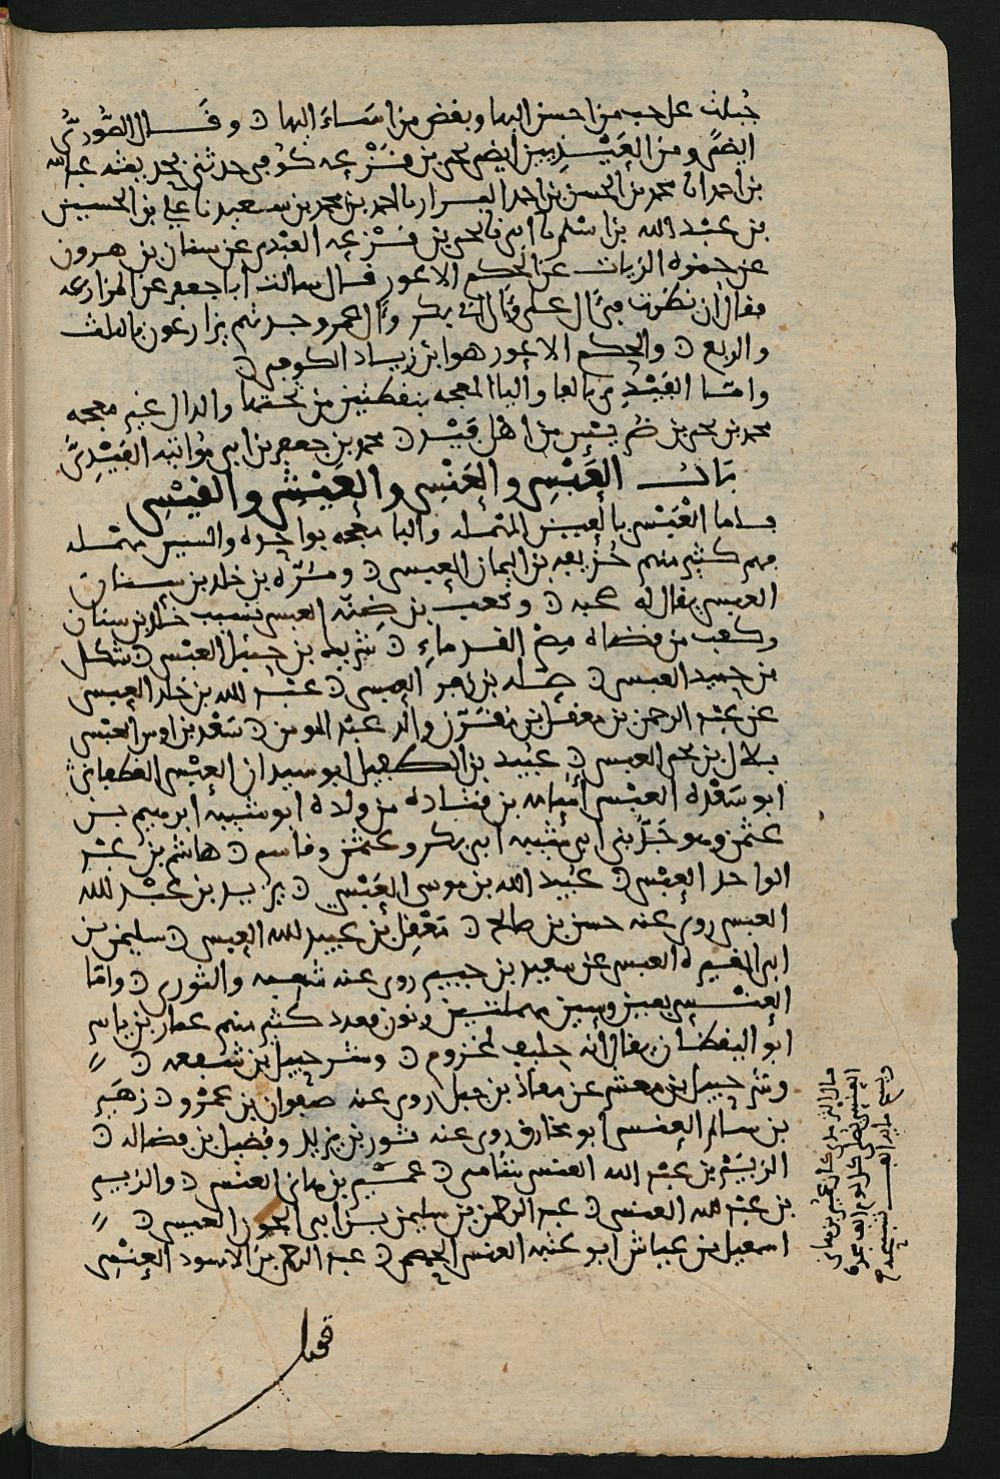 جُبلت على حب من احسن اليها وبغض من اساءَ اليها ٥ وقال الصُّورىُّ
ايضًا ومن العَيْـ ايضا يحيى بن قَزْعه كوفى حدثنى بحديثه عبد الله
بن احمد انا محمد بن الحسن بن احمد نا احمد بن محمد بن سعيد نا على بن الحسين
بن عبْد الله بن اسْلم نا ابى نا يحيى بن قَزْعه العبْدى عن سنان بن هرون
عن حمزه الزيات عن الحكم الاعور قال سالت ابا جعفر عن المزارعه
فقال ان نظرت فى ال على وال ابى بكر وال عمر وجدتهم يزارعون بالثلث
والربع ٥ والحكم الاعور هو ابن زياد الكوفى ٥
وامّا الفَيْدِى بالفا واليا المعجمه بنقطتين من تحتها والدال غير معجمه
محمد بن يحيى بن ضُريْس من اهل فَيْد ٥ محمد بن جعفر بن ابى مُواتيه الفَيْدِىُّ
بَابُ العَبْسِى والعَنْسِى والعَيْشِى والقَيْسِى
فاما العَبْسِى بالعين المهمله والبا معجمه بواحده والسين مهمله
فهم كثير منهم حُذيفه بن اليمان العبسى ٥ ومُرّه بن خلد بن سنان
العبسى يقال له صحبه ٥ وكعب بن ضِنّه العبسى نسيب خلد بن سنان
وكعب من قضاه مِصْر القدماءِ ٥ شريك بن حنبَل العبْسى ٥ شكل
بن حميد العبسى ٥ صله بن زفر العبسى ٥ عبْد الله بن خلد العبسى
عن عبْد الرحمن بن معقل بن مُقَرّن والد عبْد المومن ٥ سَعْد بن اوس العبْسى
بلال بن يحيى العبسى ٥ عبَيد بن الطفيل ابو سيدان العبْسى الغطفانى
ابو سَعْده العبْسى أسامه بن قتاده من ولده ابو شيبه ابرهيم بن
عثمن وهو جَدُّ بنى ابى شيبه ابى بكر وعثمن وقاسم ٥ هاشم بن عبْد
الواحد العبْسى ٥ عبَيد الله بن موسى العَبْسِى ٥ يزيد بن عبْد الله
العبسى روى عنه حسن بن صالح ٥ مَعْقِل بن عبيد الله العبسى ٥ سليمن بن
ابى المغيره العبسى عن سعيد بن جبير روى عنه شعبه والثورى ٥ وامّا
العنْسى بعين وسين مهملتين ونون فعدد كثير منهم عمار بن ياسر
ابو اليقظان يقال انه حليف لمخزوم ٥ وشرحبيل بن شفعه ٥
وشرحبيل بن معشر عن معاذ بن جبل روى عنه صفوان بن عمْرو ٥ زهَير
بن سالم العنسى ابو مخارق روى عنه ثور بن يزيد وفضيل بن فضاله ٥
الزبَيْر بن عبْد الله العنسى شامى ٥ عمَيْر بن هانى العنسى ٥ والزبير
بن عبْد الله العنسى ٥ عبد الرحمن بن سليمن بن ابى الجون العنسى ٥
اسمعيل بن عياش ابو عتبه العنسى الحمصى ٥ عبد الرحمن بن الاسود العنْسِى
قوبل
قال كان عُمير بن هانى
العنسى يصلى كل يوم الف سجده
ويسبح مايه الف تسبيحه